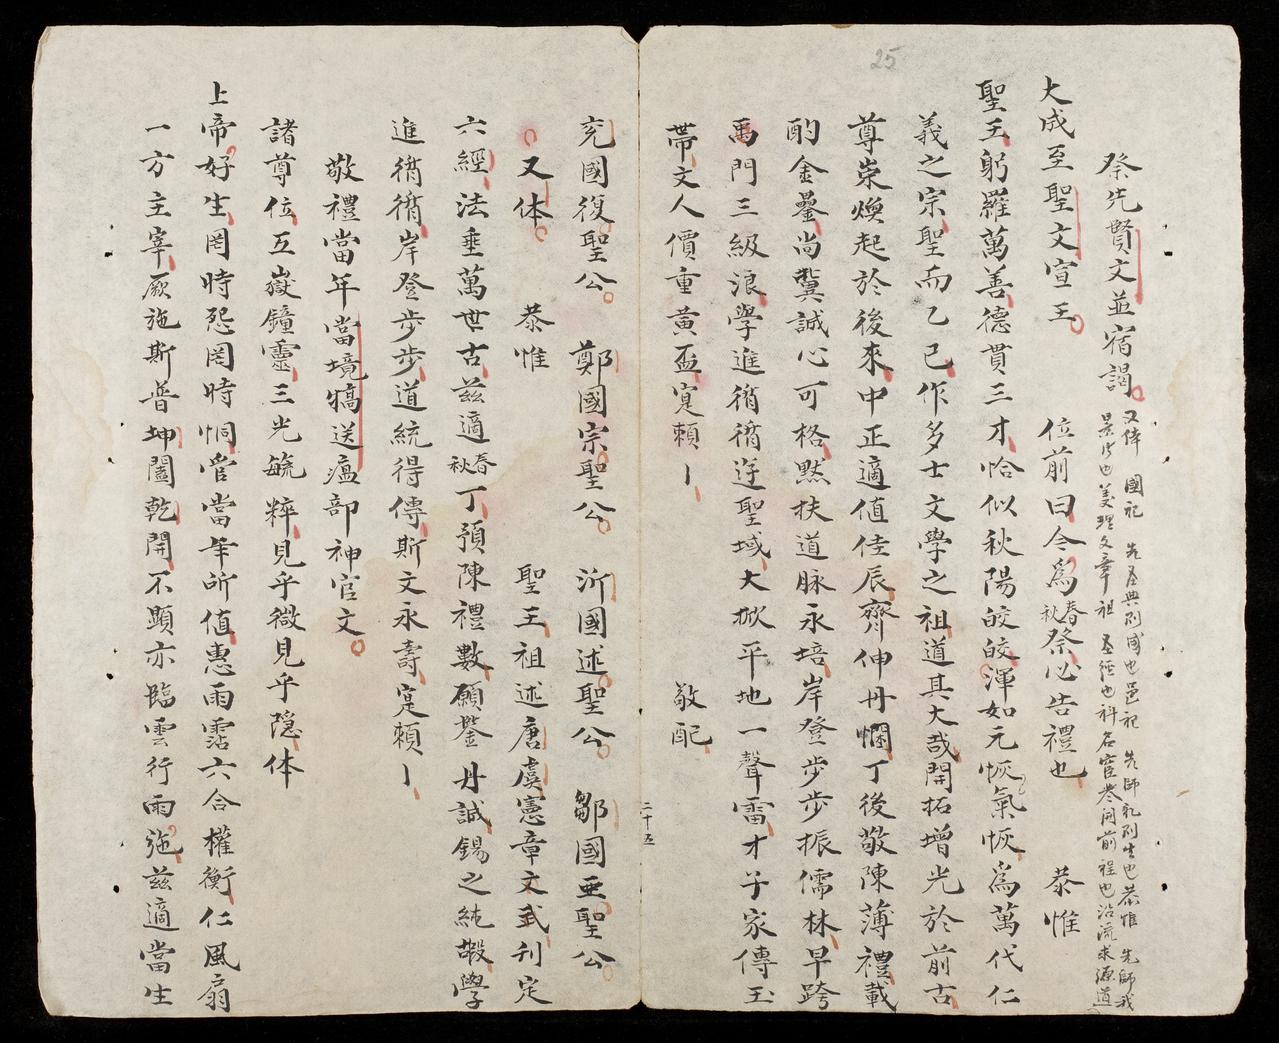 25
祭先賢文並宿謁
又体 國祀 先圣典刑國也邑祀 先師礼刑生也恭惟 先師我
景片也美理文章祖 圣经也科名宦恭问前程也沿流求源道
大成至聖文宣王 位前曰今為春秋祭必告禮也 恭惟
聖王躬羅萬善德貫三才恰似秋陽皎皎渾如元恢氣恢為萬代仁
義之宗聖而已已作多士文學之祖道其大哉開拓增光於前古
尊崇煥起於後來中正適值佳辰齊伸丹悃丁後敬陳薄禮載
酌金罍尚冀誠心可格黙扶道脉永培岸登步步振儒林早跨
禹門三級浪學進循循迋聖域大掀平地一聲雷才子家傳玉
帶文人價重黄盃寔頼
敬配
二十五
兖國復聖公 鄭國宗聖公 沂國述聖公 鄒國亜聖公
又体 恭惟 聖王祖述唐虞憲章文武刊定
六經法垂萬世古兹適春秋丁預陳禮數願鑒丹誠錫之純嘏學
進循循岸登步步道統得傳斯文永壽寔頼
敬禮當年當境犒送瘟部神官文
諸尊位五嶽鐘靈三光毓粹見乎微見乎隐体
上帝好生罔時怨罔時恫當當年所值惠雨霑六合權衡仁風扇
一方主宰厥施斯普坤闔乾開不顯亦臨雲行雨施兹適當生